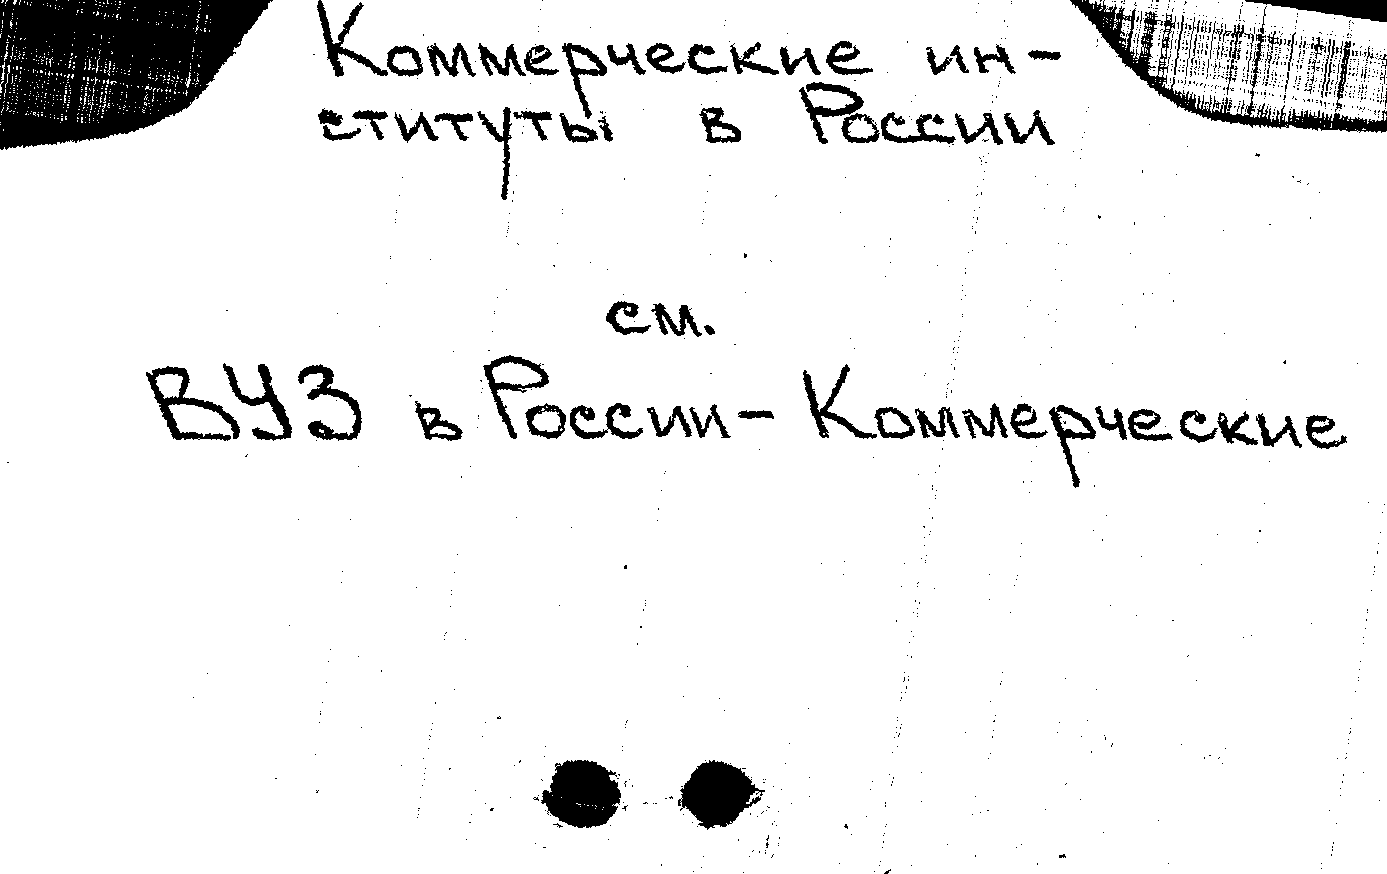 Коммерческие ин-
ституты в России
см.
ВУЗ в России - Коммерческие